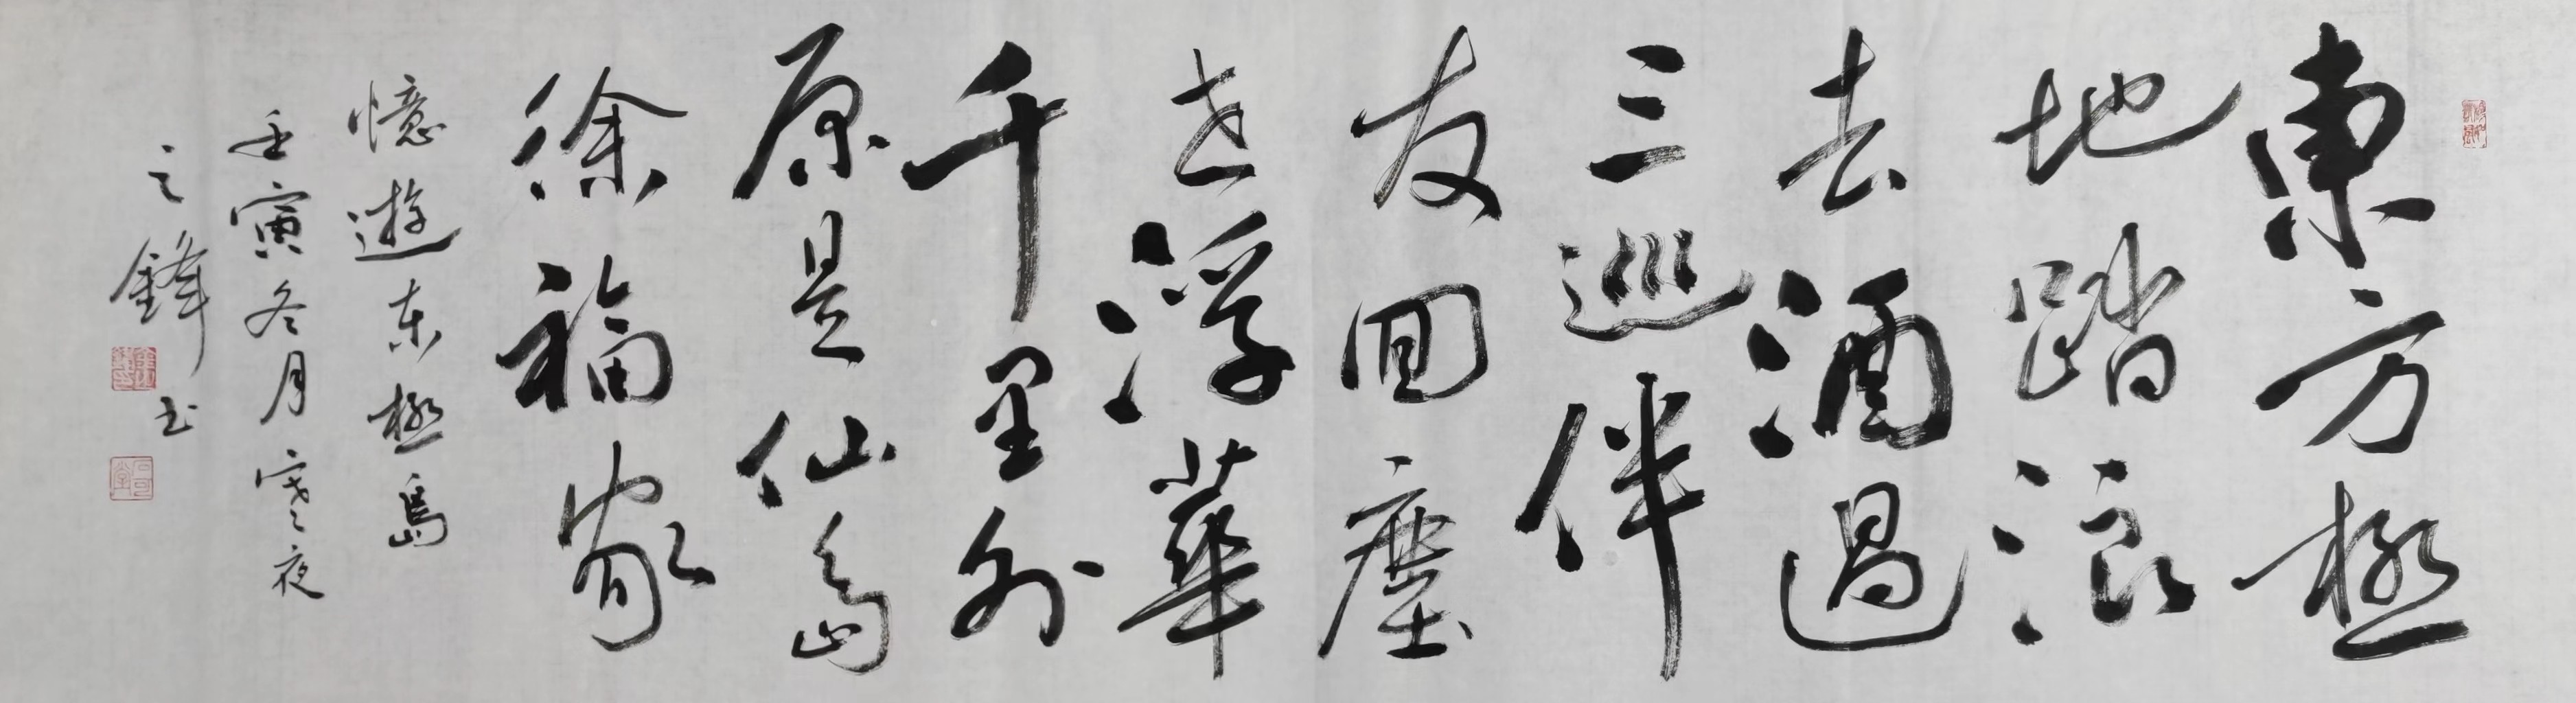 東方極
地踏浪
去酒過
三巡伴
友回塵
世浮華
千里外
原是仙島
徐福家
憶遊东極島
壬寅冬月寒夜
之鋒书